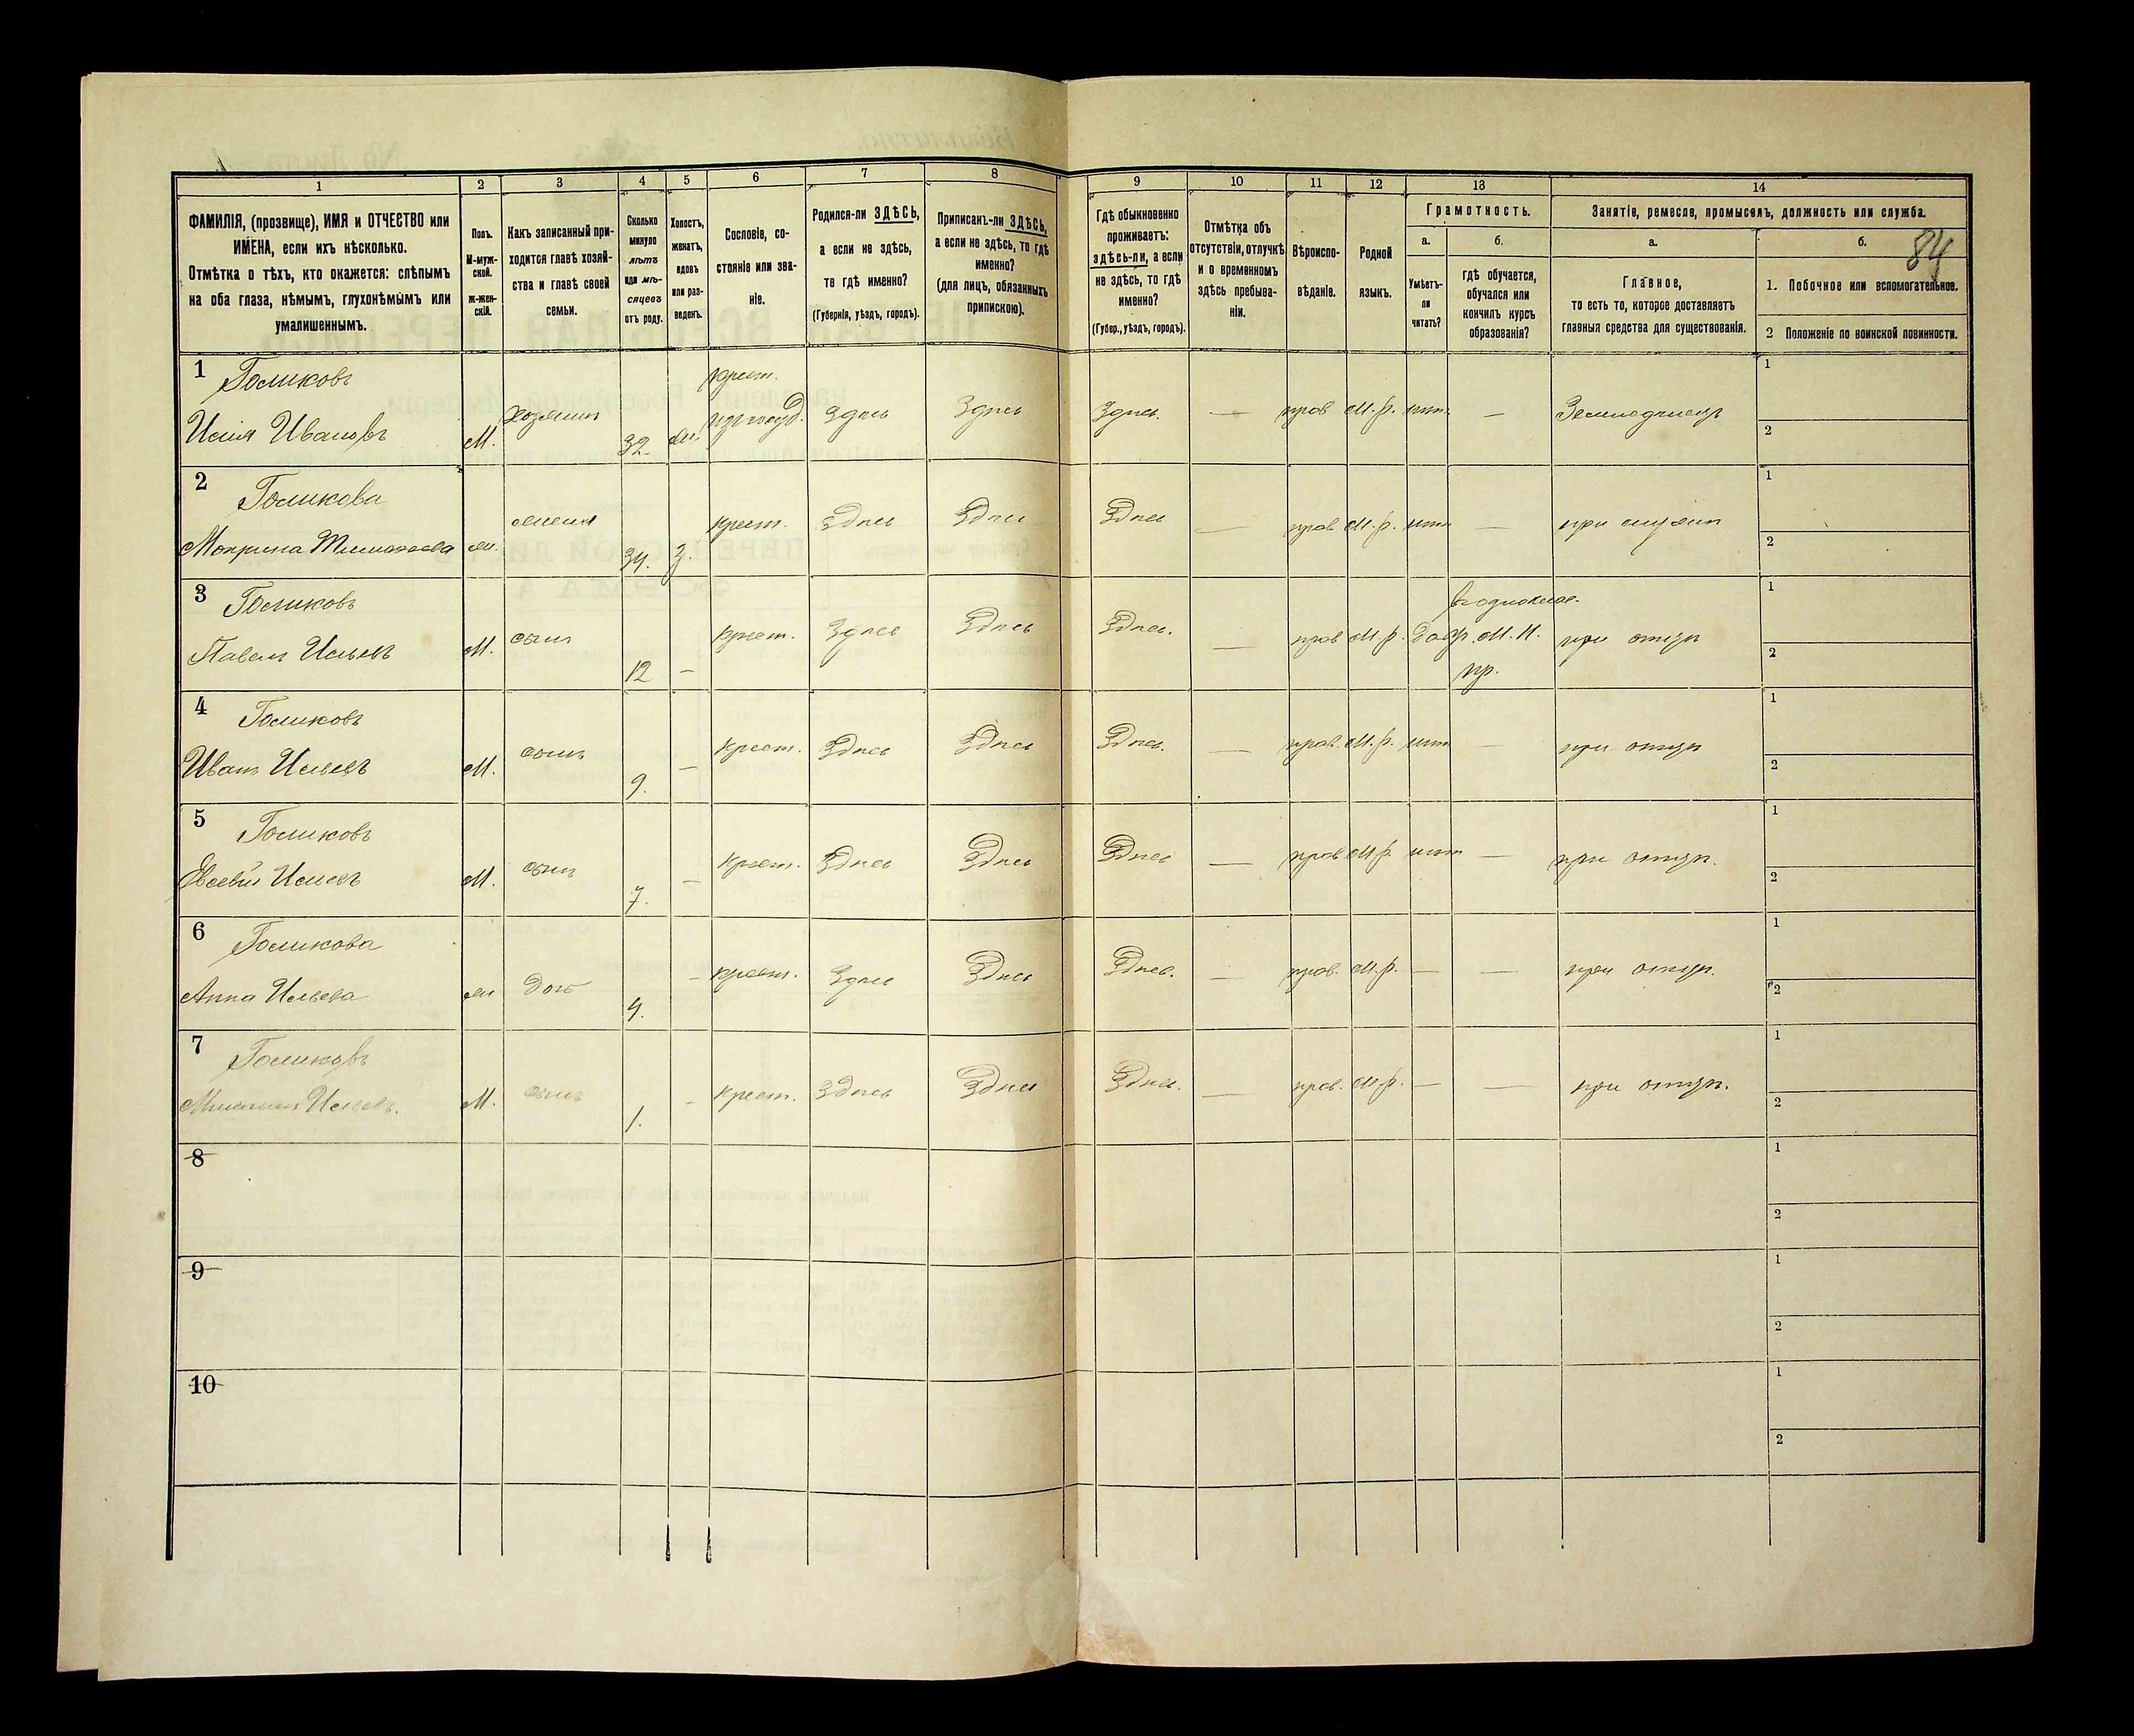 1
2
3
4
5
6
7
8
9
10
11
12
13
14
ФАМИЛІЯ, (прозвище), ИМЯ и ОТЧЕСТВО или
ИМЕНА, если ихъ нѣсколько.
Отмѣтка о тѣхъ, кто окажется: слѣпымъ
на оба глаза, нѣмымъ, глухонѣмымъ или
умалишеннымъ.
Полъ.
М-муж-
ской.
Ж-жен-
скій.
Какъ записанный при-
ходится главѣ хозяй-
ства и главѣ своей
семьи.
Сколько
минуло
лѣтъ
или мѣ-
сяцевъ
отъ роду.
Холостъ,
женатъ,
вдовъ
или раз-
веденъ.
Сословіе, со-
стояніе или зва-
ніе.
Родился-ли ЗДѢСЬ,
а если не здѣсь,
то гдѣ именно?
(Губернія, уѣздъ, городъ).
Приписанъ-ли ЗДѢСЬ,
а если не здѣсь, то гдѣ
именно?
(для лицъ, обязанныхъ
припискою).
Гдѣ обыкновенно
проживаетъ:
здѣсь-ли, а если
не здѣсь, то гдѣ
именно?
(Губер., уѣздъ, городъ).
Отмѣтка объ
отсутствіи, отлучкѣ
и о временномъ
здѣсь пребыва-
ніи.
Вѣроиспо-
вѣданіе.
Родной
языкъ.
Грамотность.
а.
Умѣетъ-
ли
читать?
б.
гдѣ обучается,
обучался или
кончилъ курсъ
образованія?
Занятіе, ремесло, промыселъ, должность или служба.
а.
Главное,
то есть то, которое доставляетъ
главныя средства для существованія.
б.
84
1. Побочное или вспомогательное.
2 Положеніе по воинской повинности.
1 Голиковъ
Илія Ивановъ
М. хозяинъ 32. ж. крест.
из госуд. Здѣсь Здѣсь Здѣсь. — прав М.р. нѣтъ — Земледѣлецъ
1
2
2 Голикова
Мокрина Тимофеева ж. жена 34. З. крест. Здѣсь Здѣсь Здѣсь — прав М.р. нѣтъ — при мужѣ
1
2
3 Голиковъ
Павелъ Ильевъ М. сынъ 12 — крест. Здѣсь Здѣсь Здѣсь. — прав М.р. да
въ однокласс.
М. Н.
пр.
при отцѣ
1
2
4 Голиковъ
Иванъ Ильевъ М. сынъ 9. — крест. Здѣсь Здѣсь Здѣсь. — прав. М.р. нѣтъ — при отцѣ
1
2
5 Голиковъ
Евсевій Ильевъ М. сынъ 7. — крест. Здѣсь Здѣсь Здѣсь — прав М.р. нѣтъ — при отцѣ.
1
2
6 Голикова
Анна Ильева ж дочь 4. - крест. Здѣсь Здѣсь Здѣсь. — прав. М.р. — — при отцѣ.
1
2
7 Голиковъ
Ильевъ. М. сынъ 1. - крест. Здѣсь Здѣсь Здѣсь. — прав. М.р. — — при отцѣ.
1
2
8
1
2
9
1
2
10
1
2